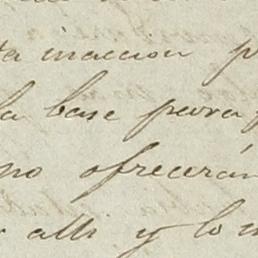 ta inaccion p
la base para
no ofrecerán
alli y lo